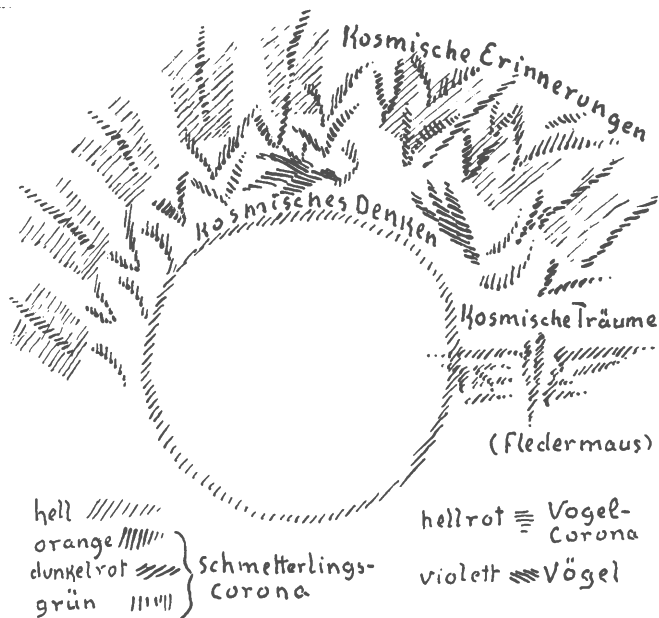 Kosmische Erinnerungen
Kosmisches Denken
Kosmische Träume
(Fledermaus)
hell
orange
dunkelrot
grün
Schmetterlings-
Corona
hellrot
Vogel-
Corona
violett
Vögel